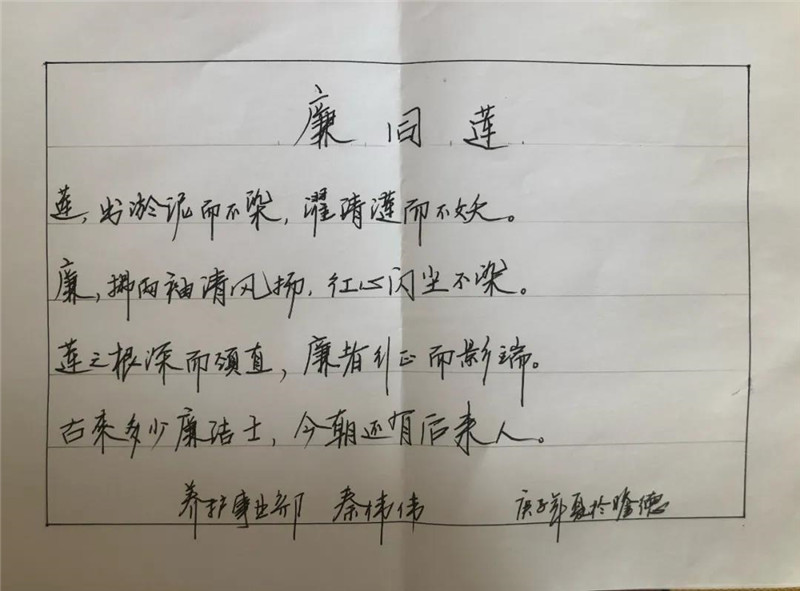 廉同莲
莲,出淤泥而不染,濯清涟而不妖。
廉,挪两袖清风扬,红心闪尘不染。
莲之根深而须直,廉者行正而影端。
古来多少廉洁士,今朝还有后来人。
养护事业部 秦伟伟 庚子年夏于隆德